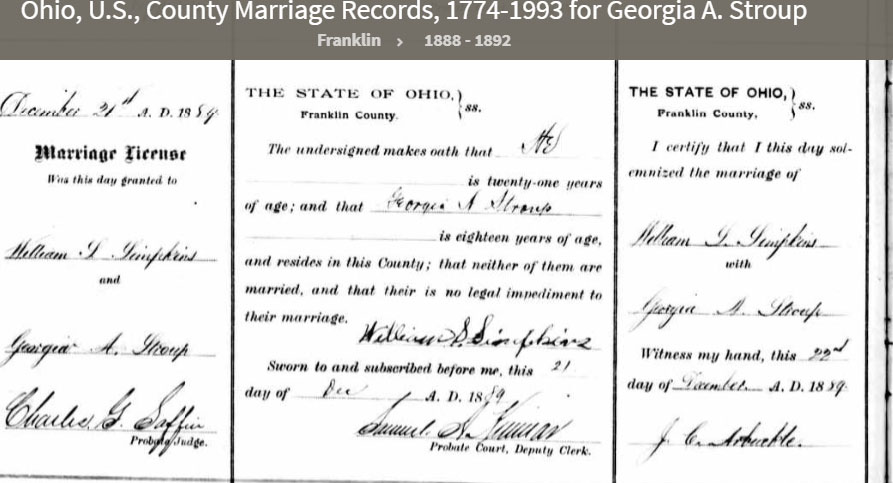 Ohio, U.S., County Marriage Records, 1774-1993 for Georgia A. Stroup
Franklin › 1888 - 1892
December 21st A. D. 1889
Marriage License
Was this day granted to
William S Simpkins
and
Georgia A. Stroup
Charles G. Saffin
Probate Judge.
THE STATE OF OHIO, } ss.
Franklin County.
The undersigned makes oath that He
is twenty-one years
of age; and that Georgia A Stroup
is eighteen years of age,
and resides in this County; that neither of them are
married, and that their is no legal impediment to
their marriage.
William S Simpkins
Sworn to and subscribed before me, this 21
day of Dec A. D. 1889
Samuel
Probate Court, Deputy Clerk.
THE STATE OF OHIO, } ss.
Franklin County,
I certify that I this day sol-
emnized the marriage of
William S. Simpkins
with
Georgia A. Stroup
Witness my hand, this 22nd
day of December A. D. 1889.
J. C. Arbuckle.